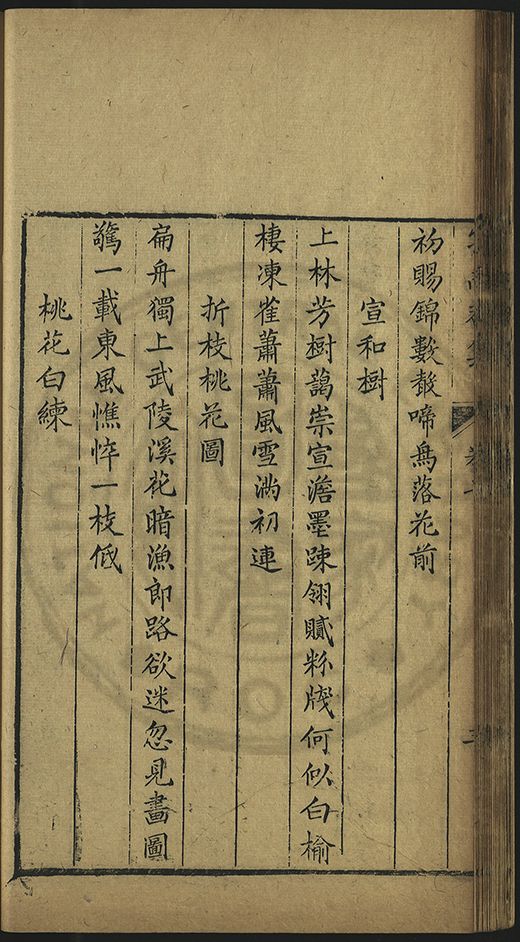 初賜錦數聲啼鳥落花前
宣和樹
上林芳樹藹崇宣澹墨踈翎賦粉牋何似白榆
棲凍雀蕭蕭風雪滿初連
折枝桃花圖
扁舟獨上武陵溪花暗漁郎路欲迷忽見畵圖
驚一載東風憔悴一枝低
桃花白練